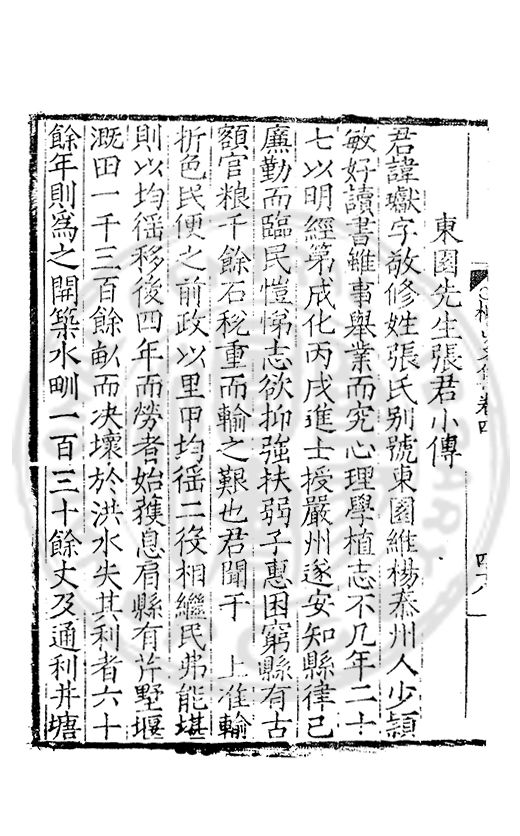 東園先生張君小傳
君諱𤣱字敬修姓張氏别號東園維楊泰州人少頴
敏好讀書雖事舉業而究心理學植志不凡年二十
七以明經第成化丙戌進士授嚴州遂安知縣律己
廉勤而臨民愷悌志欲抑強扶弱子惠困窮縣有古
額官粮千餘石稅重而輸之艱也君聞于 上准輸
折色民便之前政以里甲均徭二役相繼民弗能堪
則以均徭移後四年而勞者始獲息肩縣有芹墅堰
溉田一千三百餘畝而决壞於洪水失其利者六十
餘年則爲之開築水甽一百三十餘丈及通利井塘
卷四
四十八